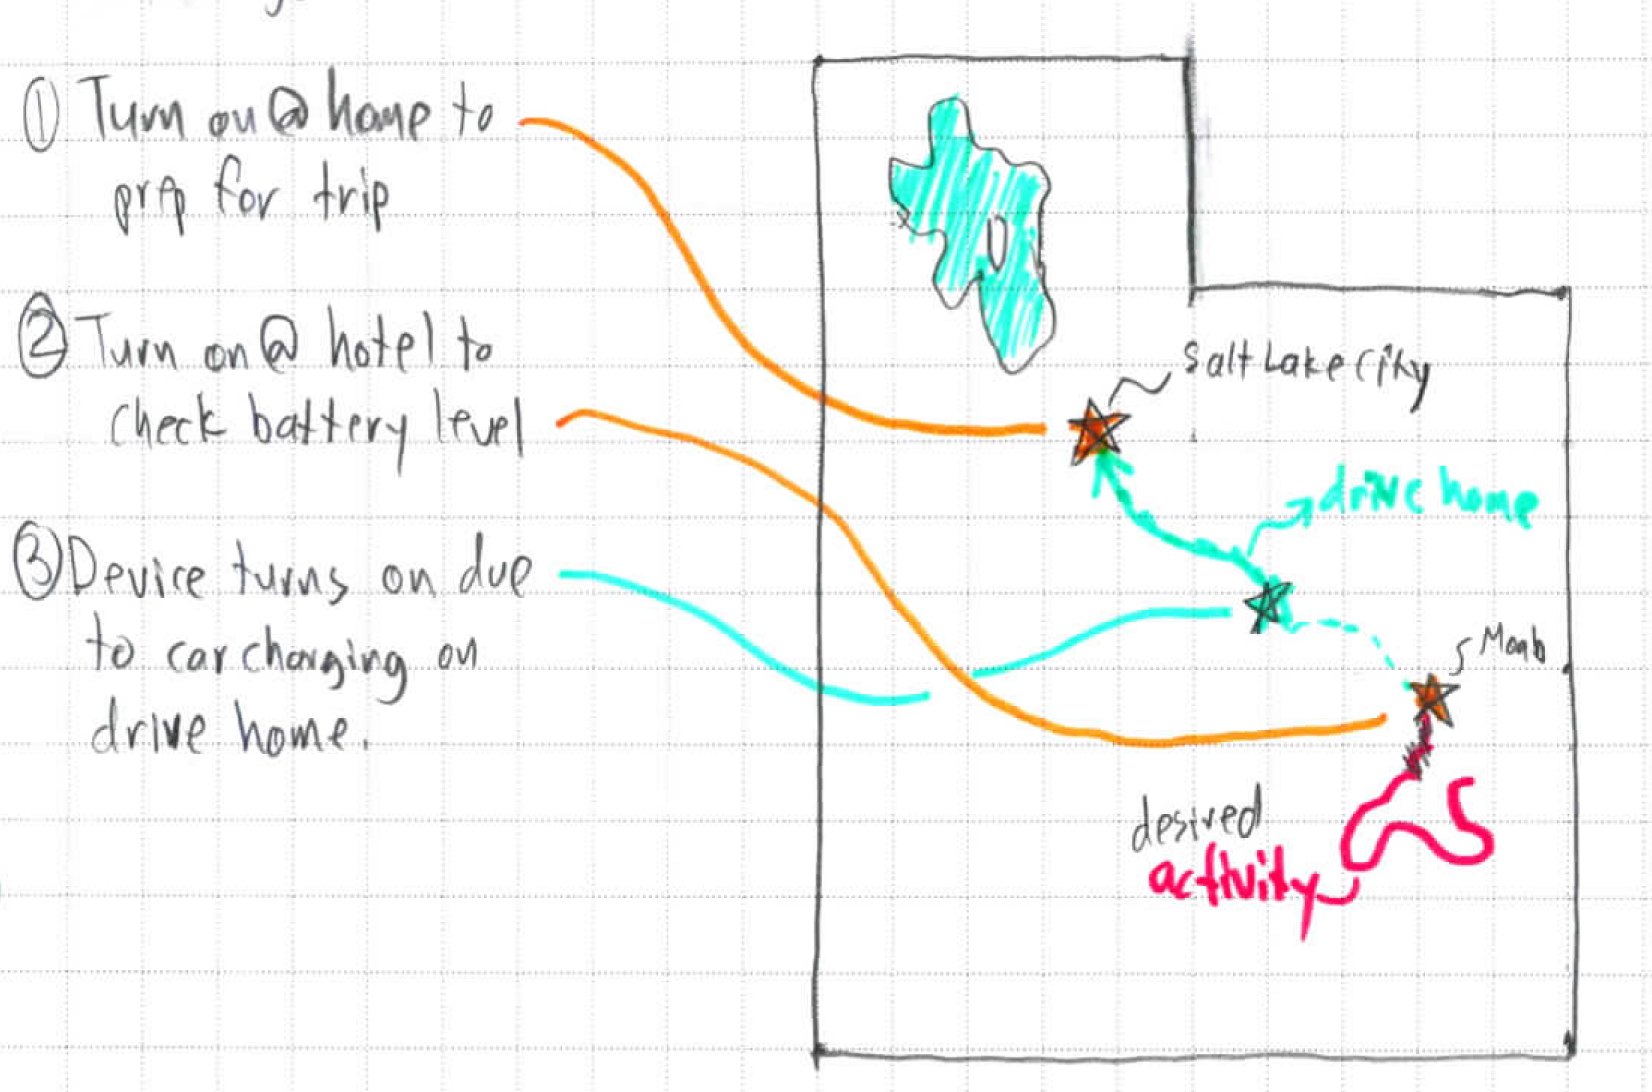 ① Turn on @ home to
prep for trip
② Turn on @ hotel to
check battery level
③ Device turns on due
to car charging on
drive home.
Salt Lake City
drive home
Moab
desired
activity